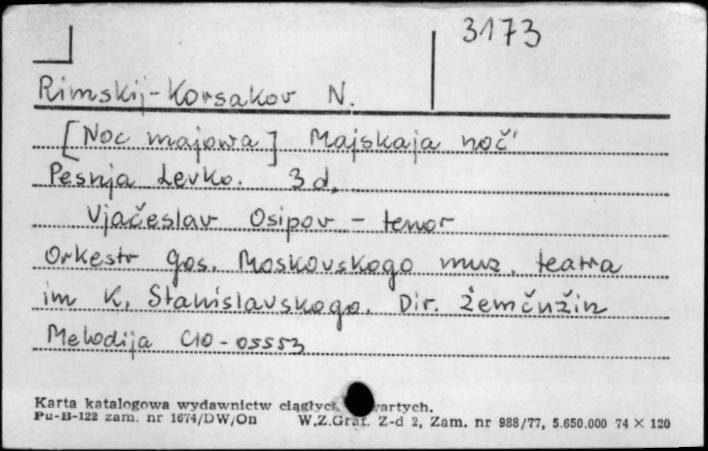 3173
Rimskij-Korsakov N.
[Noc majowa] Majskaja noč'
Pesnja Levko. 3 d.
Vjačeslav Osipov - tenor
Orkestr gos. Moskovskogo muz. teatra
im K. Stanislavskogo. Dir. Žemčužin
Melodija C10-05553
Karta katalogowa wydawnictw ciągłych
Pu-B-122 zam. nr 1674/DW/On W.Z.Graf. Z-d 2, Zam. nr 988/77, 5.650.000 74 × 120